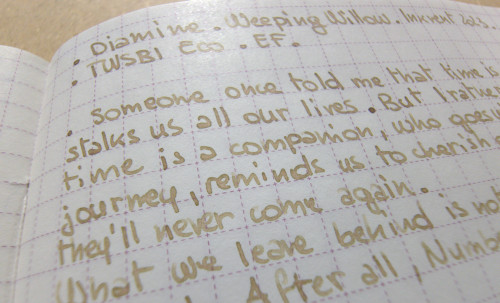 • Diamine. Weeping Willow. Inkvent 2023.
• TWSBI Eco. EF.
• Someone once told me that time is
stalks us all our lives. But I rather
time is a companion, who goes
journey, reminds us to cherish
they'll never come again.
What we leave behind is not
After all, Numb